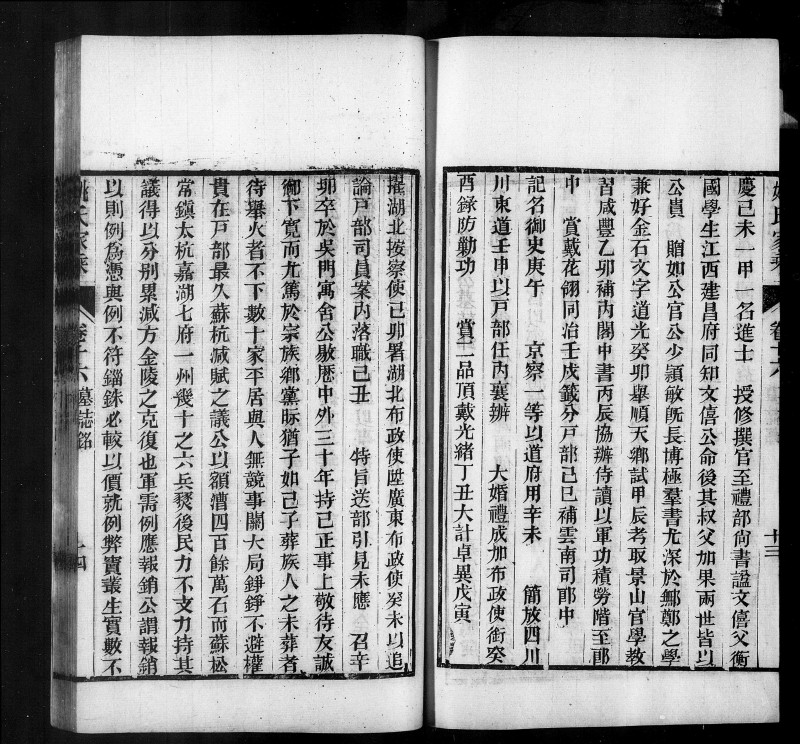 慶己未一甲一名進士　授修撰官至禮部尚書諡文僖父衡
國學生江西建昌府同知文僖公命後其叔父加果兩世皆以
公貴　贈如公官公少穎敏旣長博極羣書尤深於鄦鄭之學
兼好金石文字道光癸卯舉順天鄉試甲辰考取景山官學教
習咸豐乙卯補內閣中書丙辰協辦侍讀以軍功積勞階至郎
中　賞戴花翎同治壬戌籤分戸部己巳補雲南司郎中
記名御史庚午　京察一等以道府用辛未　簡放四川
川東道壬申以戸部任內襄辦　大婚禮成加布政使銜癸
酉錄防勦功　賞二品頂戴光緒丁丑大計卓異戊寅
姚氏家乘　卷十六　十三
擢湖北按察使己卯署湖北布政使陞廣東布政使癸未以追
論戸部司員案內落職己丑　特旨送部引見未應　召辛
卯卒於吳門寓舍公敭歷中外三十年持己正事上敬待友誠
御下寬而尤篤於宗族鄉黨眎猶子如己子葬族人之未葬者
待舉火者不下數十家平居與人無競事關大局錚錚不避權
貴在戸部最久蘇杭減賦之議公以額漕四百餘萬石而蘇松
常鎭太杭嘉湖七府一州幾十之六兵燹後民力不支力持其
議得以分别累減方金陵之克復也軍需例應報銷公謂報銷
以則例爲憑與例不符錙銖必較以價就例弊竇叢生實數不
姚氏家乘　卷十六　墓誌銘　十四